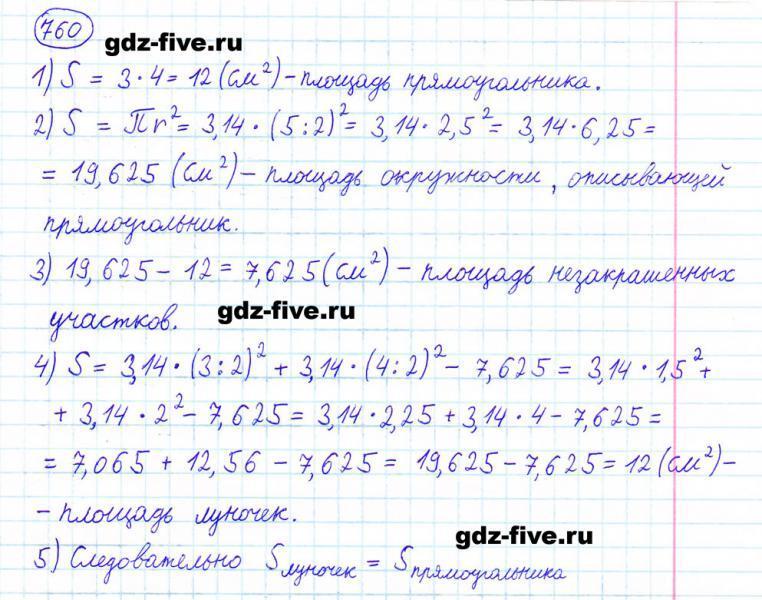 760
gdz-five.ru
1) S = 3 · 4 = 12 (см²) – площадь прямоугольника.
2) S = Пr² = 3,14 · (5 : 2)² = 3,14 · 2,5² = 3,14 · 6,25 =
= 19,625 (см²) – площадь окружности, описывающей
прямоугольник.
3) 19,625 – 12 = 7,625 (см²) – площадь незакрашенных
участков.
gdz-five.ru
4) S = 3,14 · (3 : 2)² + 3,14 · (4 : 2)² – 7,625 = 3,14 · 1,5² +
+ 3,14 · 2² – 7,625 = 3,14 · 2,25 + 3,14 · 4 – 7,625 =
= 7,065 + 12,56 – 7,625 = 19,625 – 7,625 = 12 (см²) –
– площадь луночек.
gdz-five.ru
5) Следовательно Sлуночек = Sпрямоугольника